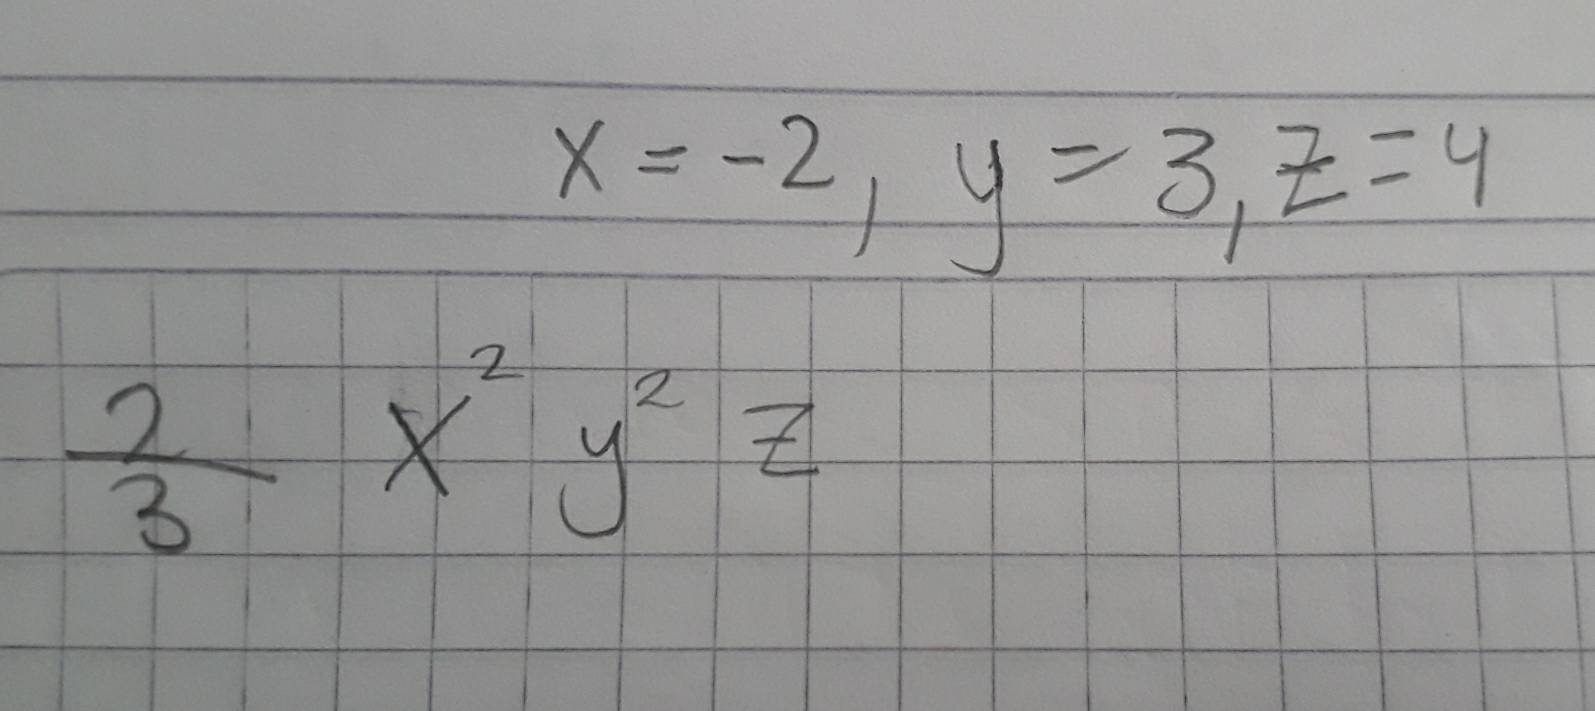 x = -2, y = 3, z = 4
2/3 x² y² z